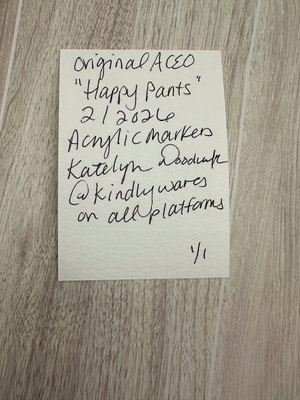 Original ACEO
"Happy Pants"
2/2026
Acrylic Markers
Katelyn
@kindlywares
on all platforms
1/1